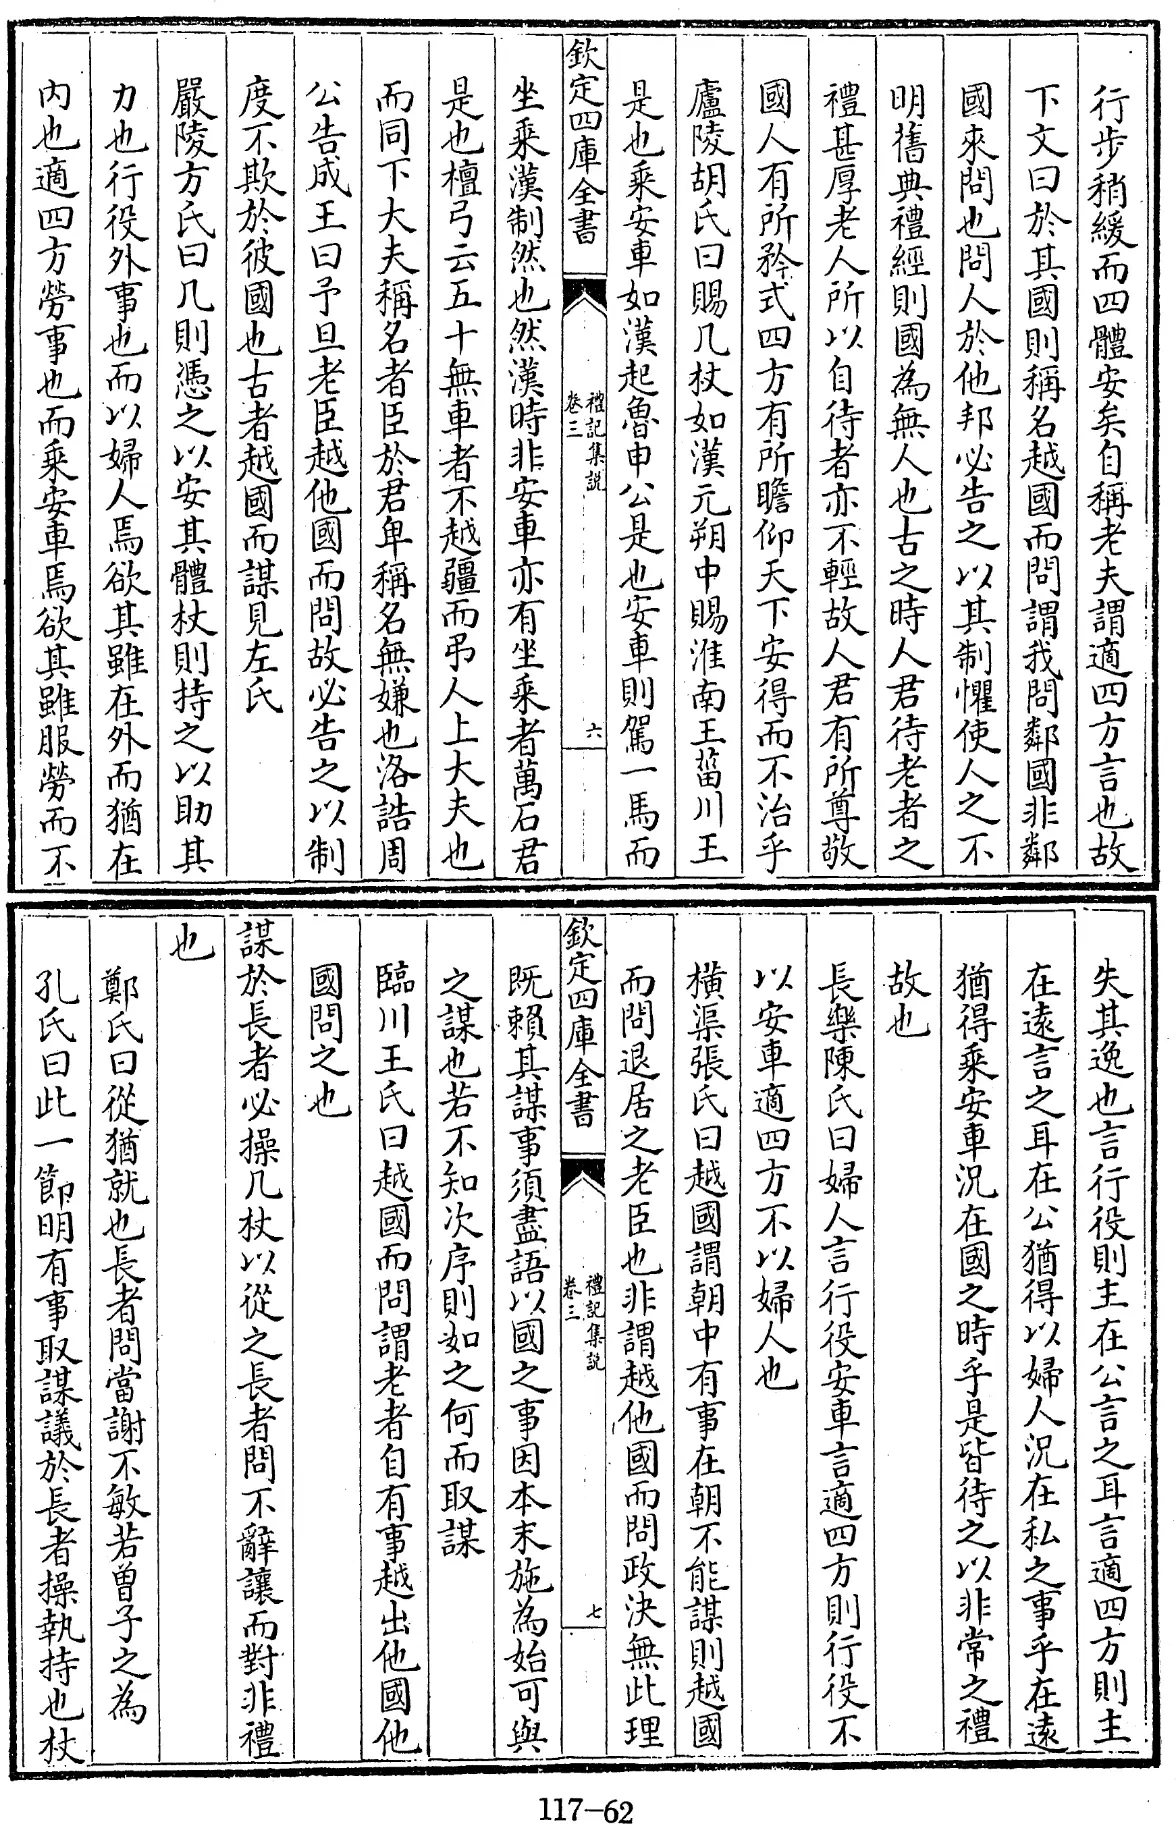 行步稍緩而四體安矣自稱老夫謂適四方言也故
下文曰於其國則稱名越國而問謂我問鄰國非鄰
國來問也問人於他邦必告之以其制懼使人之不
明舊典禮經則國為無人也古之時人君待老者之
禮甚厚老人所以自待者亦不輕故人君有所尊敬
國人有所矜式四方有所瞻仰天下安得而不治乎
廬陵胡氏曰賜几杖如漢元朔中賜淮南王菑川王
是也乘安車如漢起魯申公是也安車則駕一馬而
欽定四庫全書
禮記集說
卷三
六
坐乘漢制然也然漢時非安車亦有坐乘者萬石君
是也檀弓云五十無車者不越疆而弔人上大夫也
而同下大夫稱名者臣於君卑稱名無嫌也洛誥周
公告成王曰予旦老臣越他國而問故必告之以制
度不欺於彼國也古者越國而謀見左氏
嚴陵方氏曰几則憑之以安其體杖則持之以助其
力也行役外事也而以婦人焉欲其雖在外而猶在
內也適四方勞事也而乘安車焉欲其雖服勞而不
失其逸也言行役則主在公言之耳言適四方則主
在遠言之耳在公猶得以婦人況在私之事乎在遠
猶得乘安車況在國之時乎是皆待之以非常之禮
故也
長樂陳氏曰婦人言行役安車言適四方則行役不
以安車適四方不以婦人也
橫渠張氏曰越國謂朝中有事在朝不能謀則越國
而問退居之老臣也非謂越他國而問政決無此理
欽定四庫全書
禮記集說
卷三
七
既賴其謀事須盡語以國之事因本末施為始可與
之謀也若不知次序則如之何而取謀
臨川王氏曰越國而問謂老者自有事越出他國他
國問之也
謀於長者必操几杖以從之長者問不辭讓而對非禮
也
鄭氏曰從猶就也長者問當謝不敏若曾子之為
孔氏曰此一節明有事取謀議於長者操執持也杖
117-62